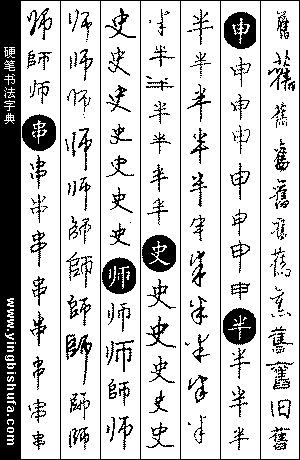 舊舊舊舊舊舊舊舊舊舊旧舊
申申申申申申申申半半半半
半半半半半半半半半半半
半半半半半半半史史史史史史
史史史史史史史师师师師师
师师师师师師師師師師師
师師师串串串串串串串串串
硬笔书法字典
www.yingbishufa.com